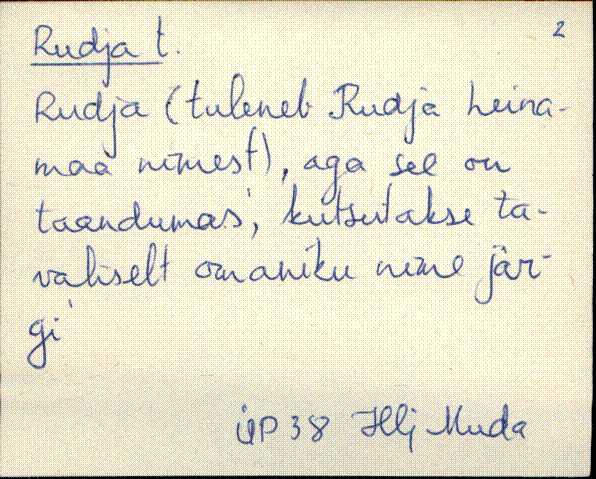 2
Rudja t.
Rudja (tuleneb Rudja heina-
maa nimest), aga see on
taandumas, kutsutakse ta-
valiselt omaniku nime jär-
gi
ÜP 38 Hlj Muda